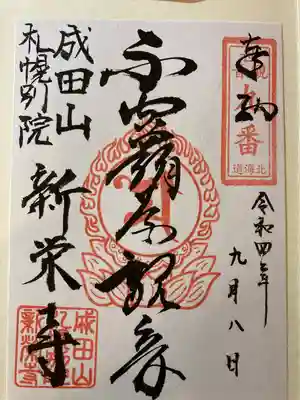 奉納
番
北海道
令和四年
九月八日
不空羂索観音
成田山
札幌別院
新栄寺
成田山
新栄寺